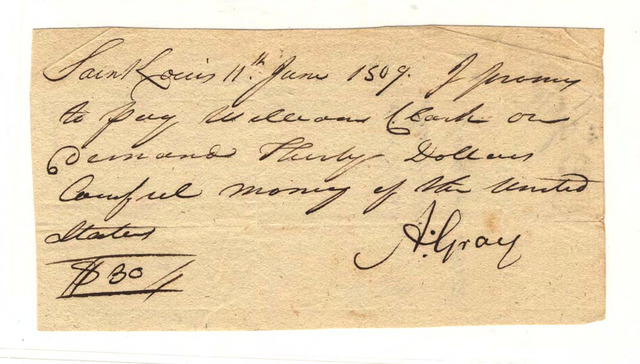 Saint Louis 11th June 1809. I promis
to pay William Clark on
Demand Thirty Dollars
lawful money of the United
States
A. Gray
$30/